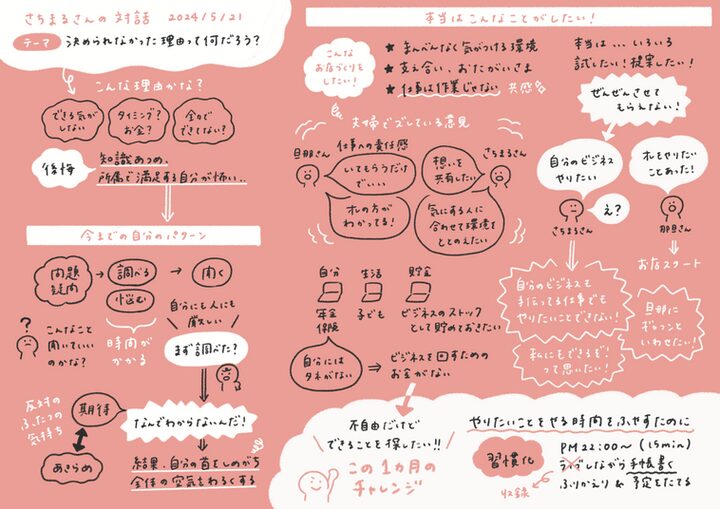 さちまるさんの対話 2024/5/21
テーマ 決められなかった理由って何だろう?
こんな理由かな?
できる気が
しない
タイミング?
お金?
全力で
できてない?
後悔
知識あつめ、
所属で満足する自分が怖い‥
今までの自分のパターン
問題
疑問
調べる
悩む
聞く
?
こんなこと
聞いていい
のかな?
時間が
かかる
自分にも人にも
厳しい
まず調べた?
反対の
ふたつの
気持ち
期待
あきらめ
なんでわからないんだ!
結果、自分の首をしめがち
全体の空気もわるくする
本当はこんなことがしたい!
こんな
お店づくりを
したい!
★ まんべんなく気がつける環境
★ 支え合い、おたがいさま
★ 仕事は作業じゃない 共感
夫婦でズレている意見
旦那さん
仕事への責任感
いてもらうだけ
でいい
オレの方が
わかってる!
想いを
共有したい
さちまるさん
気にする人に
合わせて環境を
ととのえたい
自分
生活
貯金
年金
保険
子ども
ビジネスのストック
として貯めておきたい
自分には
タネがない
⇒ ビジネスを回すための
お金がない
本当は…いろいろ
試したい!提案したい!
ぜんぜんさせて
もらえない!
自分のビジネス
やりたい
オレもやりたい
ことあった!
え?
さちまるさん
旦那さん
お店スタート
自分のビジネスも
手伝ってる仕事でも
やりたいことできない!
私にもできるぞ!
って思いたい!
旦那に
ギャフンと
いわせたい!
不自由だけど
できることを探したい!!
この1ヵ月の
チャレンジ
やりたいことをやる時間をふやすために
習慣化
PM22:00〜(15min)
ライブしながら手帳書く
収録
ふりかえり & 予定をたてる